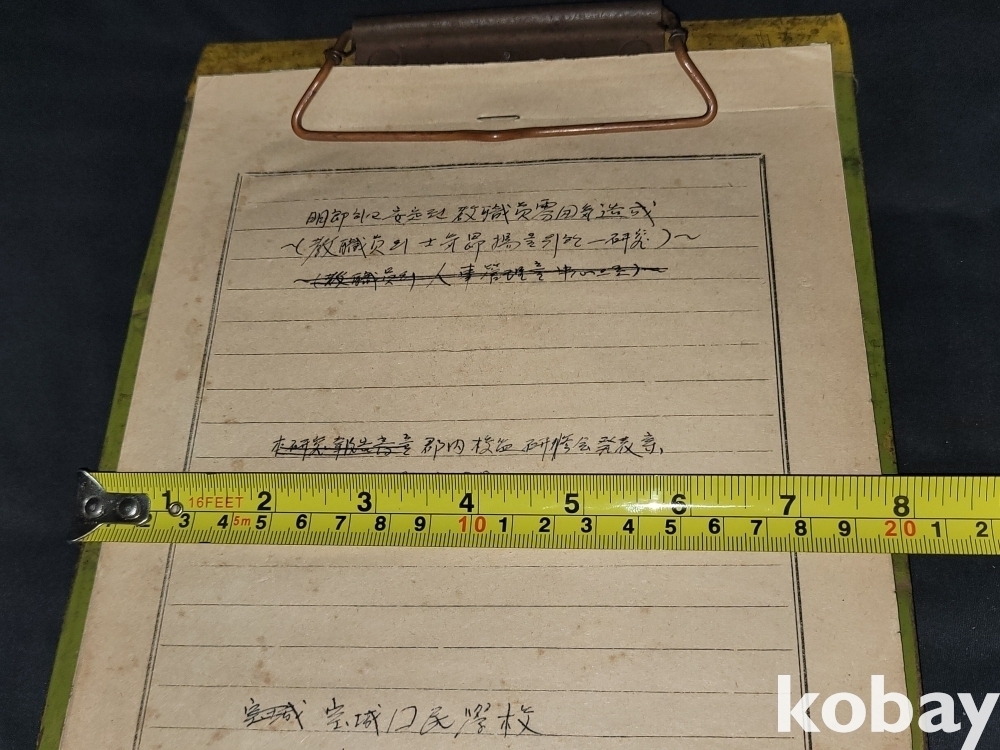 明郎하고 安定된 教職員雰囲気造成
~(教職員의 士気昻揚을 위한 一研究)~
~(教職員의 人事管理를 中心으로)~
本研究報告書를 郡内 校監 研修会 発表
1 16FEET 2 3 4 5 6 7 8
2 3 4 5m 5 6 7 8 9 10 1 2 3 4 5 6 7 8 9 20 1 2
宝城 宝城口民學校
kobay